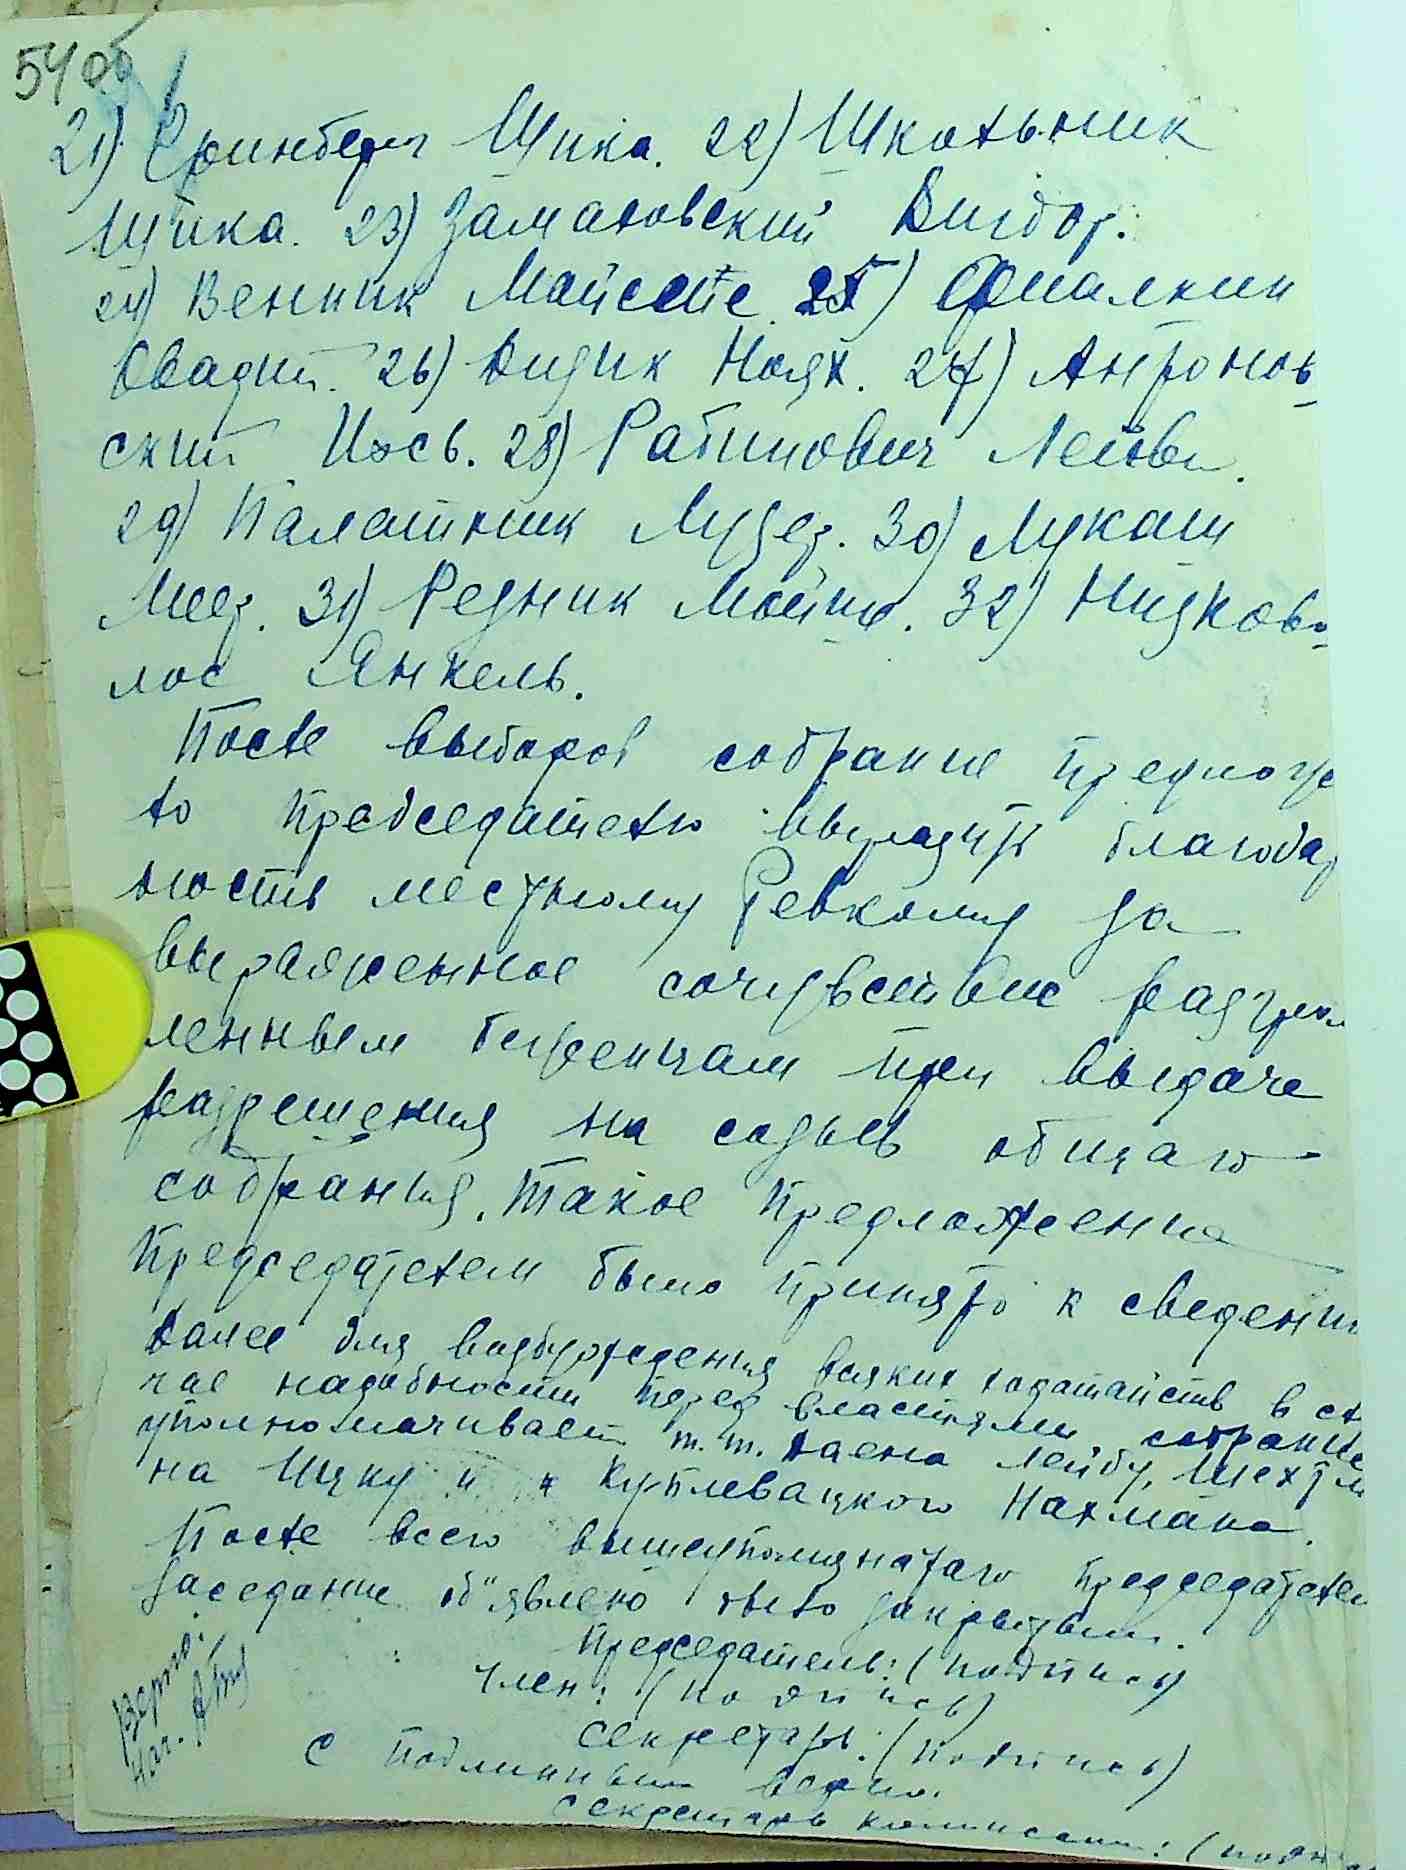 54 об
21) Гринберг Шика. 22) Школьник
Шика. 23) Заматовский Вигдор.
24) Венник Майсей. 25) Фиалкин
Овадий. 26) Видик Ноях. 27) Антонов-
ский Иось. 28) Рабинович Лейви.
29) Палатник Лузер. 30) Лукаш
Меер. 31) Редник Мойше. 32) Низков-
лос Янкель.
После выборов собрание предложи
ло председателю выразить благодар
ность местному Ревкому за
выраженное сочувствие разгром
ленным беженцам при выдаче
разрешения на созыв общаго
собрания. Такое предложение
председателем было принято к сведению
Далее для возбуждения всяких ходатайств в слу
чае надобности перед властями собрание
уполномачивает т.т. Хаена Лейбу, Шехтма
на Шику и Куплевацкого Нахмана.
После всего вышеупомянутаго председателем
заседание об"явлено было закрытым.
Председатель: (подпись)
Член: (подпись)
Секретарь: (подпись)
С подлинным верно:
Секретарь комиссии: (подпи
Верно:
Нач.